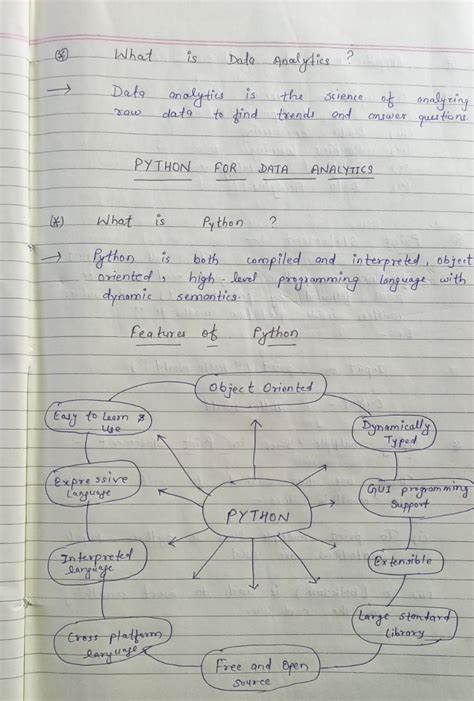 (*) What is Data Analytics ?
→ Data analytics is the science of analyzing
raw data to find trends and answer questions.
PYTHON FOR DATA ANALYTICS
(*) What is Python ?
→ Python is both compiled and interpreted, object
oriented, high-level programming language with
dynamic semantics.
Features of Python
Object Oriented
Easy to Learn &
Use
Dynamically
Typed
Expressive
Language
GUI programming
Support
PYTHON
Interpreted
language
Extensible
Cross platform
language
Large standard
Library
Free and Open
source